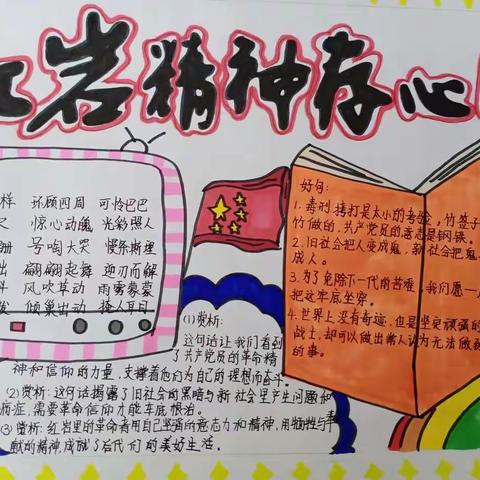 红岩精神存心
样 环顾四周 可怜巴巴
尺 惊心动魄 光彩照人
珊 号啕大哭 慢条斯理
出 翩翩起舞 迎刃而解
斗 风吹草动 雨雾蒙蒙
发 倾巢出动 掩人耳目
好句:
1.毒刑拷打是太小的考验,竹签子
竹做的,共产党员的意志是钢铁。
2.旧社会把人变成鬼,新社会把鬼
成人。
3.为了免除下一代的苦难,我们愿
把这牢底坐穿。
4.世界上没有奇迹,但是坚定顽强的
战士,却可以做出常人认为无法做到
的事。
(1)赏析:
这句话让我们看到
了共产党员的革命精
神和信仰的力量,支撑着他们为自己的理想而奋斗。
(2)赏析:这句话揭露了旧社会的黑暗与新社会里产生问题和
病症,需要革命信仰力能车底根治。
(3)赏析:红岩里的革命者用自己坚强的意志力和精神,用牺牲与奉
献的精神,成就了后代们的美好生活。